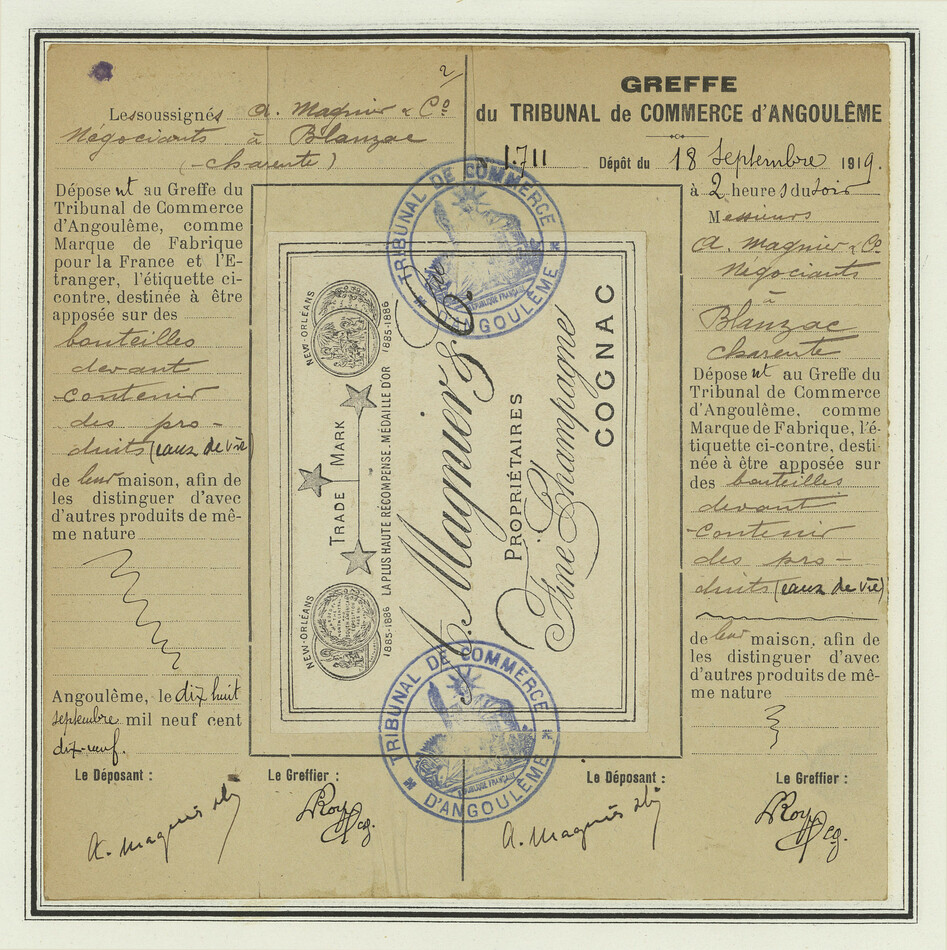 2
Les soussignés A. Magnier & Cº
Négociants à Blanzac
(-Charente)
Déposent au Greffe du
Tribunal de Commerce
d'Angoulême, comme
Marque de Fabrique
pour la France et l'E-
tranger, l'étiquette ci-
contre, destinée à être
apposée sur des
bouteilles
devant
contenir
des pro-
duits (eaux de vie
de leur maison, afin de
les distinguer d'avec
d'autres produits de mê-
me nature
Angoulême, le dix huit
septembre mil neuf cent
dix-neuf.
Le Déposant :
Le Greffier :
A. Magnier
Roy
GREFFE
du TRIBUNAL de COMMERCE d'ANGOULÊME
N 1.711 Dépôt du 18 Septembre 1919.
à 2 heures du soir
Messieurs
A. Magnier & Cº
Négociants
à
Blanzac
Charente
Déposent au Greffe du
Tribunal de Commerce
d'Angoulême, comme
Marque de Fabrique, l'é-
tiquette ci-contre, desti-
née à être apposée sur
des bouteilles
devant
contenir
des pro-
duits (eaux de vie)
de leur maison, afin de
les distinguer d'avec
d'autres produits de mê-
me nature
Le Déposant :
Le Greffier :
A. Magnier
Roy
NEW-ORLÉANS
1885-1886
TRADE MARK
NEW-ORLÉANS
1885-1886
LA PLUS HAUTE RÉCOMPENSE. MÉDAILLE D'OR
A. Magnier & Cº.
PROPRIÉTAIRES
Fine Champagne
COGNAC
TRIBUNAL DE COMMERCE
D'ANGOULÊME
RÉPUBLIQUE FRANÇAISE
TRIBUNAL DE COMMERCE
D'ANGOULÊME
RÉPUBLIQUE FRANÇAISE